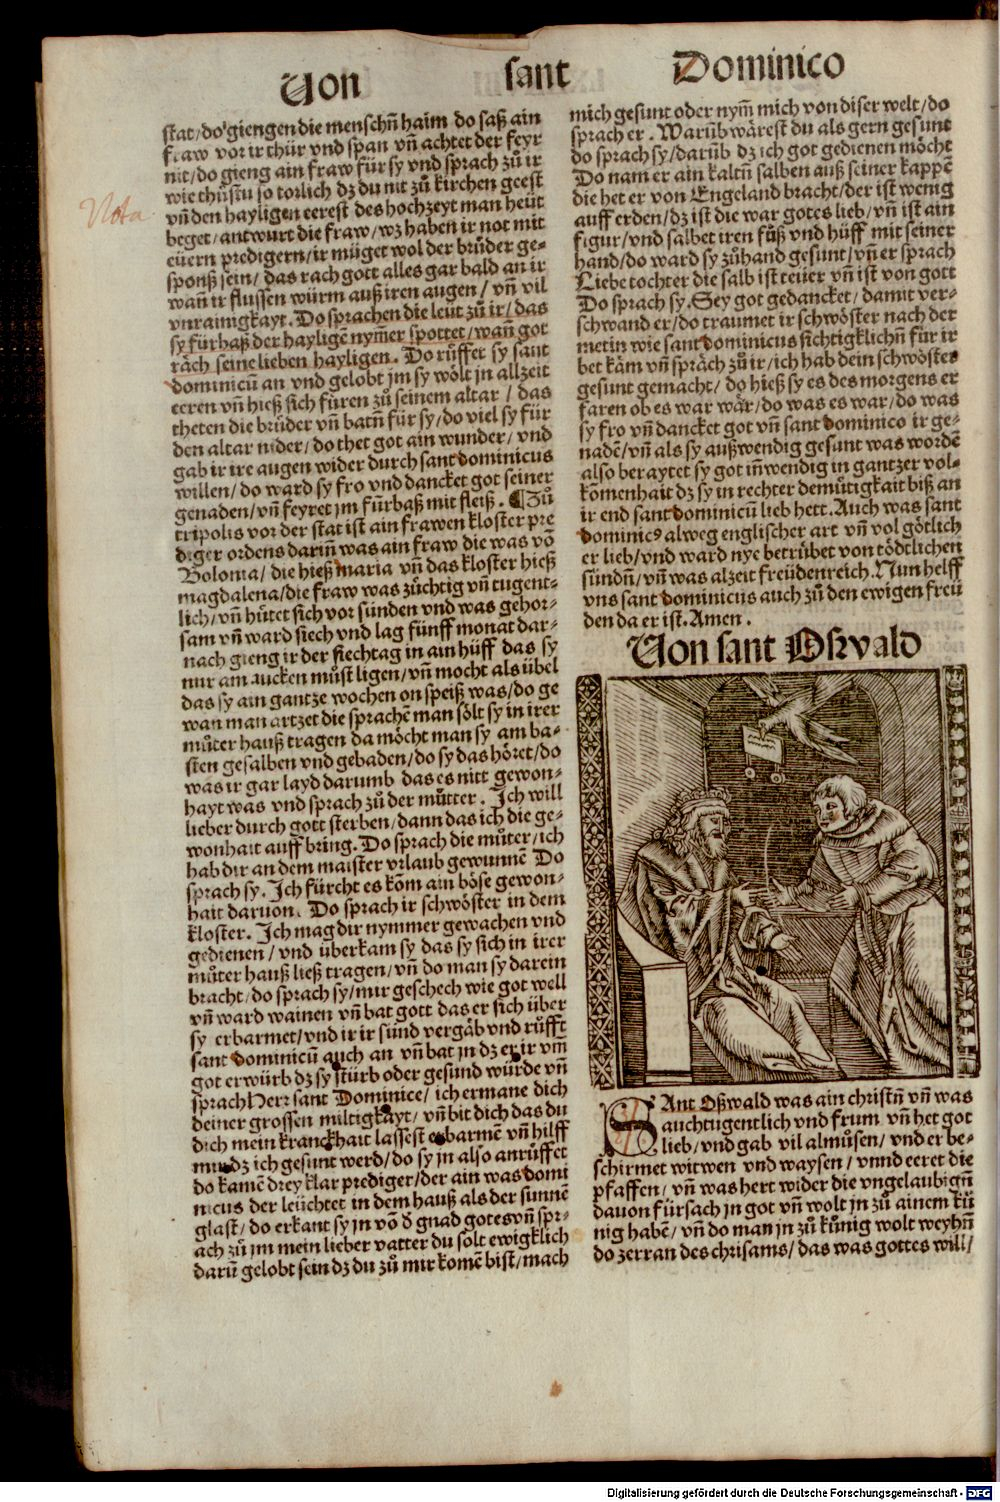 Uon sant Dominico
stat/do giengen die menschñ haim do saß ain
fraw vor ir thür vnd span vñ achtet der feyr
nit/do gieng ain fraw für sy vnd sprach zů ir
wie thůstu so torlich dz du nit zů kirchen geest
vñ den hayligen eerest des hochzeyt man heüt
beget/antwurt die fraw/wz haben ir not mit
eüern predigern/ir müget wol der brůder ge-
sponß sein/das rach gott alles gar bald an ir
wañ ir flussen würm auß iren augen/vñ vil
vnrainigkayt. Do sprachen die leüt zů ir/das
sy fürbaß der hayligẽ nym̃er spottet/wañ got
räch seine lieben hayligen. Do rüffet sy sant
dominicũ an vnd gelobt jm sy wölt jn allzeit
eeren vñ hieß sich füren zů seinem altar/das
theten die brůder vñ batñ für sy/do viel sy für
den altar nider/do thet got ain wunder/vnd
gab ir ire augen wider durch sant dominicus
willen/do ward sy fro vnd dancket got seiner
genaden/vñ feyret jm fürbaß mit fleiß. ¶ Zů
tripolis vor der stat ist ain frawen kloster pre
diger ordens dariñ was ain fraw die was võ
Bolonia/die hieß maria vñ das kloster hieß
magdalena/die fraw was züchtig vñ tugent-
lich/vñ hůtet sich vor sünden vnd was gehor-
sam vñ ward siech vnd lag fünff monat dar-
nach gieng ir der siechtag in ain hüff das sy
nur am rucken můst ligen/vñ mocht als übel
das sy ain gantze wochen on speiß was/do ge
wan man artzet die sprachẽ man sölt sy in irer
můter hauß tragen da möcht man sy am ba-
sten gesalben vnd gebaden/do sy das höret/do
was ir gar layd darumb das es nitt gewon-
hayt was vnd sprach zů der můtter. Ich will
lieber durch gott sterben/dann das ich die ge-
wonhait auff bring. Do sprach die můter/ich
hab dir an dem maister vrlaub gewunnẽ Do
sprach sy. Ich fürcht es kõm ain böse gewon-
hait daruon. Do sprach ir schwöster in dem
kloster. Ich mag dir nymmer gewachen vnd
gedienen/vnd überkam sy das sy sich in irer
můter hauß ließ tragen/vñ do man sy darein
bracht/do sprach sy/mir geschech wie got well
vñ ward wainen vñ bat gott das er sich über
sy erbarmet/vnd ir ir sünd vergäb vnd růfft
sant dominicũ auch an vñ bat jn dz er ir vm̃
got erwürb dz sy stürb oder gesund würde vñ
sprach Herr sant Dominice/ich ermane dich
deiner grossen miltigkayt/vñ bit dich das du
dich mein kranckhait lassest erbarmẽ vñ hilff
mir dz ich gesunt werd/do sy jn also anrůffet
do kamẽ drey klar prediger/der ain was domi
nicus der leüchtet in dem hauß als der sunnẽ
glast/do erkant sy jn võ d̃ gnad gotes vñ spr-
ach zů jm mein lieber vatter du solt ewigklich
darũ gelobt sein dz du zů mir komẽ bist/mach
mich gesunt oder nym̃ mich von diser welt/do
sprach er. Warũb wärest du als gern gesunt
do sprach sy/darũb dz ich got gedienen möcht
Do nam er ain kaltñ salben auß seiner kappẽ
die het er von Engeland bracht/der ist wenig
auff erden/dz ist die war gotes lieb/vñ ist ain
figur/vnd salbet iren fůß vnd hüff mit seiner
hand/do ward sy zůhand gesunt/vñ er sprach
Liebe tochter die salb ist teüer vñ ist von gott
Do sprach sy. Sey got gedancket/damit ver-
schwand er/do traumet ir schwöster nach der
metin wie sant dominicus sichtigklichñ für ir
bet kãm vñ spräch zů ir/ich hab dein schwöster
gesunt gemacht/do hieß sy es des morgens er
faren ob es war wär/do was es war/do was
sy fro vñ dancket got vñ sant dominico ir ge-
nadẽ/vñ als sy außwendig gesunt was wordẽ
also beraytet sy got iñwendig in gantzer vol-
kõmenhait dz sy in rechter demůtigkait biß an
ir end sant dominicũ lieb hett. Auch was sant
dominicꝰ alweg englischer art vñ vol götlich
er lieb/vnd ward nye betrübet von tödtlichen
sündñ/vñ was alzeit freüdenreich. Nun helff
vns sant dominicus auch zů den ewigen freü
den da er ist. Amen.
Uon sant Oswald
SAnt Oßwald was ain christñ vñ was
auch tugentlich vnd frum vñ het got
lieb/vnd gab vil almůsen/vnd er be-
schirmet witwen vnd waysen/vnnd eeret die
pfaffen/vñ was hert wider die vngelaubigñ
dauon fürsach jn got vñ wolt jn zů ainem kü
nig habẽ/vñ do man jn zů künig wolt weyhñ
do zerran des chrisams/das was gottes will/
Nota
Digitalisierung gefördert durch die Deutsche Forschungsgemeinschaft - DFG